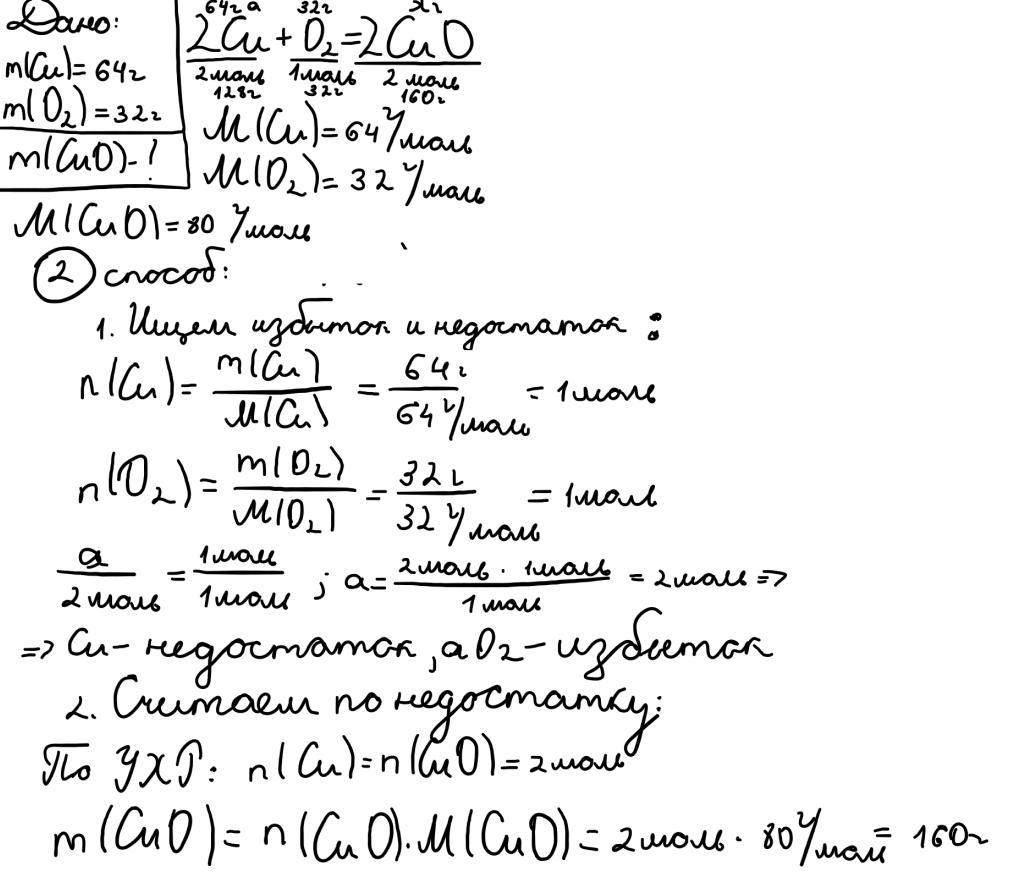 Дано:
m(Cu)=64г
m(O₂)=32г
m(CuO)-?
64г a 32г xг
2Cu + O₂ = 2CuO
2 моль 1 моль 2 моль
128г 32г 160г
M(Cu)=64 г/моль
M(O₂)=32 г/моль
M(CuO)=80 г/моль
2 способ:
1. Ищем избыток и недостаток:
n(Cu)= m(Cu)/M(Cu) = 64г/64 г/моль = 1 моль
n(O₂)= m(O₂)/M(O₂) = 32г/32 г/моль = 1 моль
a/2 моль = 1 моль/1 моль ; a= 2 моль · 1 моль/1 моль = 2 моль =>
=> Cu- недостаток, а O₂- избыток
2. Считаем по недостатку:
По УХР: n(Cu)=n(CuO)=2 моль
m(CuO)= n(CuO)·M(CuO)= 2 моль · 80 г/моль = 160г